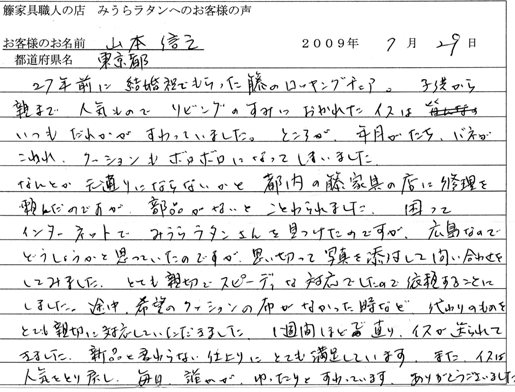 籐家具職人の店 みうらラタンへのお客様の声
お客様のお名前 山本 信之 2009年 7月 29日
都道府県名 東京都
27年前に 結婚祝でもらった籐のロッキングチェア。 子供から
親まで 人気もので リビングのすみにおかれたイスは
いつもだれかが すわっていました。 ところが、年月がたち、バネが
こわれ、クーションもボロボロになってしまいました。
なんとか元通りにならないかと 都内の籐家具の店に修理を
頼んだのですが、部品がないと ことわられました。 困って
インターネットで みうらラタンさんを見つけたのですが、広島なので
どうしようかと思っていたのですが、思い切って写真を添付して問い合わせを
してみました。 とても親切でスピーディな対応でしたので依頼することに
しました。 途中、希望のクッションの布がなかった時など 代わりのものを
とても親切に対応していただきました。 1週間ほどで直り、イスが送られて
きました。 新品と変わらない仕上りにとても満足しています。 また、イスは
人気をとり戻し、毎日、誰かが ゆったりとすわっています。ありがとうございました